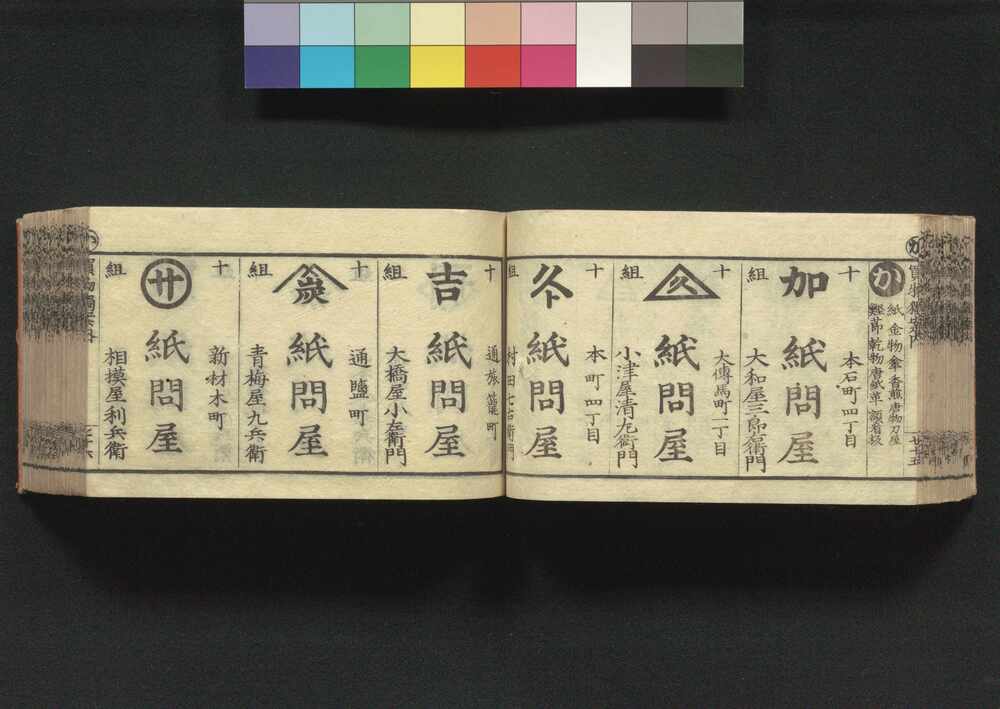 か
紙 金物 傘 香煎 唐物 刀屋
鰹節 乾物 唐紙 革 額看板
十 本石町四丁目
加 紙問屋
組 大和屋三郎兵衛門
十 大傳馬町一丁目
久 紙問屋
組 小津屋清左衛門
十 本町四丁目
紙問屋
組 村田七右衛門
十 通旅籠町
吉 紙問屋
組 大橋屋小左衛門
十 通鹽町
炭 紙問屋
組 青梅屋九兵衛
十 新材木町
廿 紙問屋
組 相摸屋利兵衛